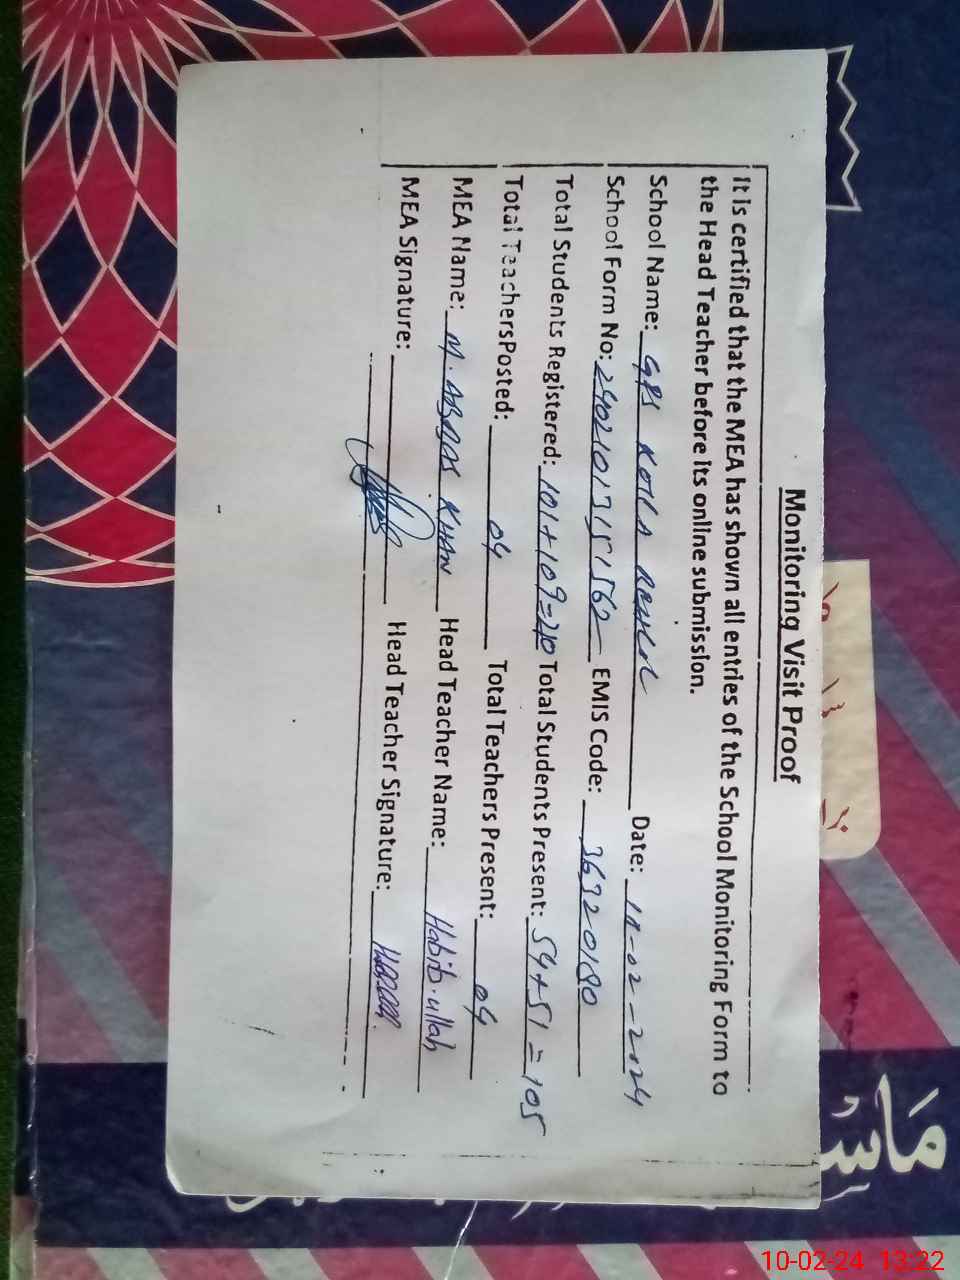 Monitoring Visit Proof
It is certified that the MEA has shown all entries of the School Monitoring Form to
the Head Teacher before its online submission.
School Name: GPS KOTLA Date: 10-02-2024
School Form No: 24021013151562 EMIS Code: 36320180
Total Students Registered: 101+109=210 Total Students Present: 54+51=105
Total TeachersPosted: 04 Total Teachers Present: 04
MEA Name: M. ABBAS KHAN Head Teacher Name: Habib.ullah
MEA Signature: Head Teacher Signature:
10-02-24 13:22